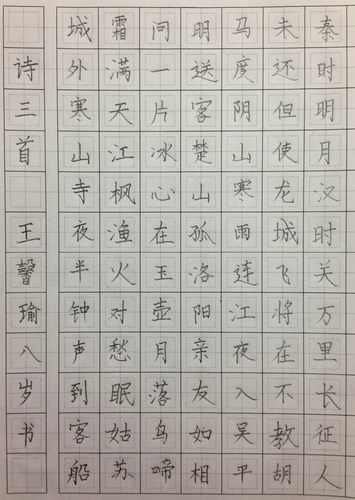 秦时明月汉时关万里长征人
未还但使龙城飞将在不教胡
马度阴山寒雨连江夜入吴平
明送客楚山孤洛阳亲友如相
问一片冰心在玉壶月落乌啼
霜满天江枫渔火对愁眠姑苏
城外寒山寺夜半钟声到客船
诗三首 王馨瑜八岁书